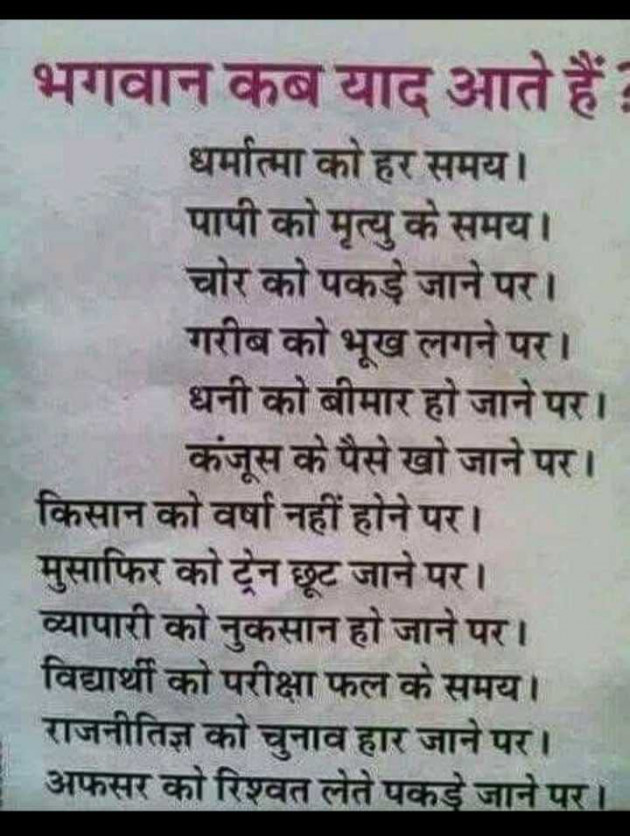 भगवान कब याद आते हैं ?
धर्मात्मा को हर समय।
पापी को मृत्यु के समय।
चोर को पकड़े जाने पर।
गरीब को भूख लगने पर।
धनी को बीमार हो जाने पर।
कंजूस के पैसे खो जाने पर।
किसान को वर्षा नहीं होने पर।
मुसाफिर को ट्रेन छूट जाने पर।
व्यापारी को नुकसान हो जाने पर।
विद्यार्थी को परीक्षा फल के समय।
राजनीतिज्ञ को चुनाव हार जाने पर।
अफसर को रिश्वत लेते पकड़े जाने पर।